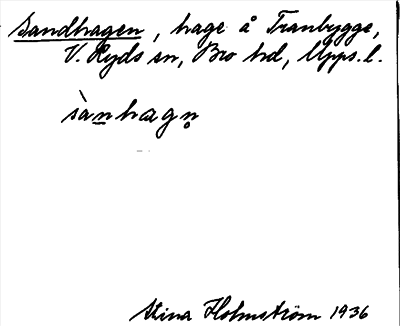 Sandhagen, hage å Tranbygge,
V. Ryds sn, Bro hd, Upps. l.
sànhagn̥
Stina Holmström 1936